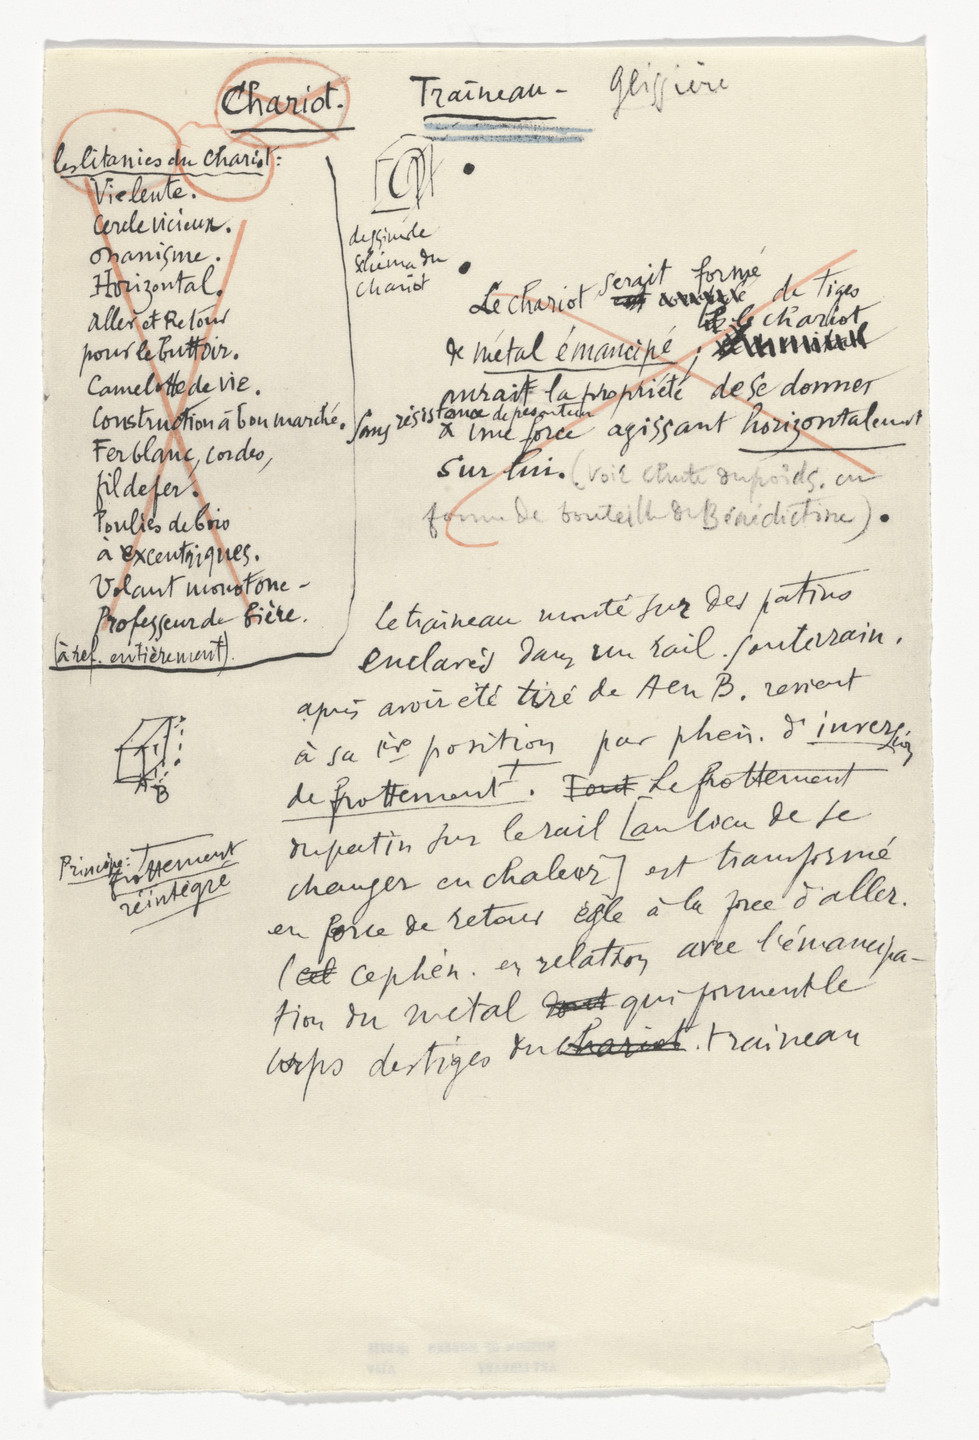 Chariot. Traîneau - Glissière
les litanies du Chariot:
Vie lente.
Cercle vicieux.
onanisme.
Horizontal.
aller et Retour
pour le buttoir.
Camelotte de vie.
Construction à bon marché.
Fer blanc, cordes,
fil de fer.
Poulies de bois
à excentriques.
Volant monotone -
Professeur de bière.
(à ref. entièrement).
dessin de
schéma du
chariot
Le chariot serait formé de tiges
de métal émancipé ; le chariot
aurait la propriété de se donner
sans résistance de pesanteur
à une force agissant horizontalement
sur lui. (voir chute du poids. en
forme de bouteille de Bénédictine).
A
B
Principe: frottement
réintégré
le traineau monté sur des patins
enclavés dans un rail. souterrain.
après avoir été tiré de A en B. revient
à sa 1ère position par phén. d'inversion
de frottement +. Tout Le frottement
du patin sur le rail [au lieu de se
changer en chaleur] est transformé
en force de retour égle à la force d'aller.
( ce phén. en relation avec l'émancipa-
tion du métal dont qui forment le
corps des tiges du chariot. traineau